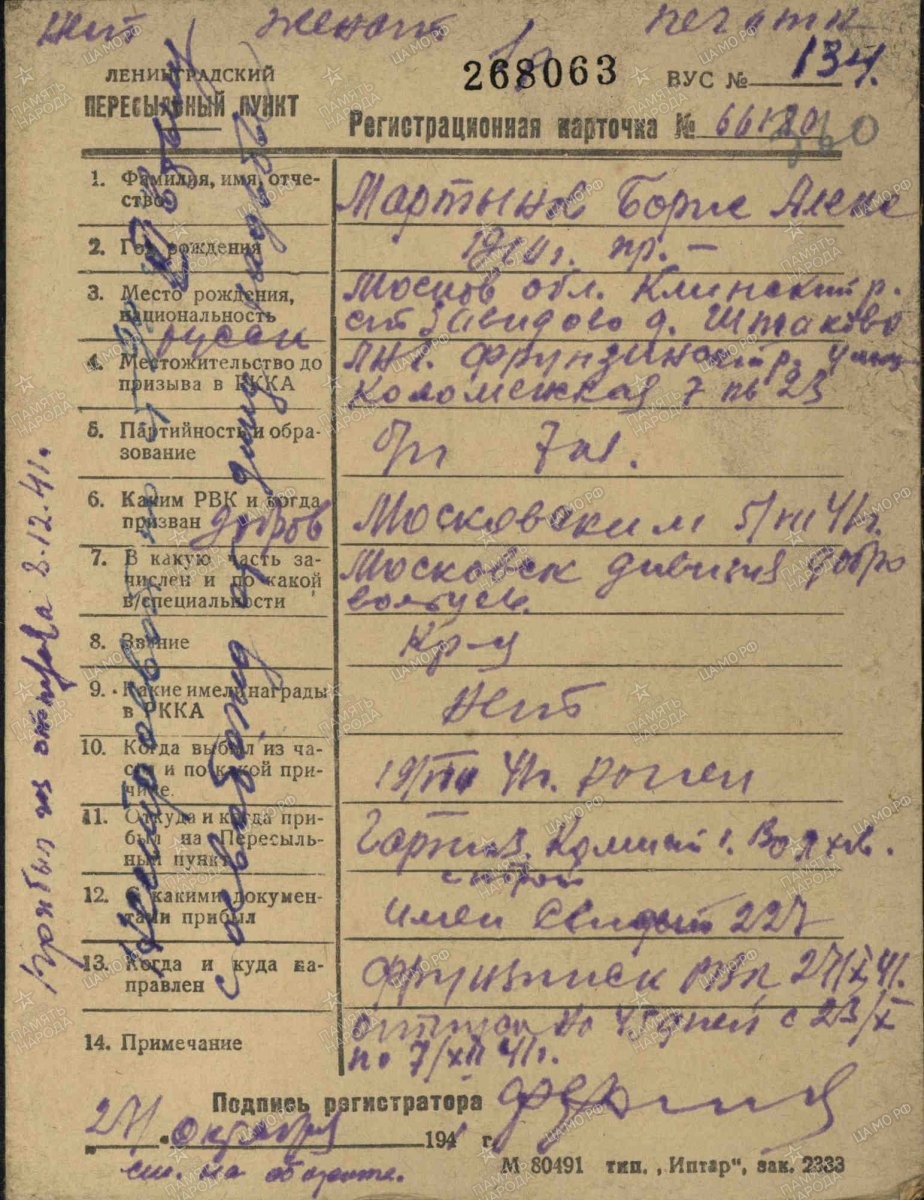 нет женат печати
ЛЕНИНГРАДСКИЙ
ПЕРЕСЫЛЬНЫЙ ПУНКТ
268063 ВУС № 134.
Регистрационная карточка №
1. Фамилия, имя, отче-
ство
Мартынов Борис Алекс
2. Год рождения
1914г. пр. –
3. Место рождения,
национальность
русск
Москов обл. Клинский р.
ст Завидово д. Шпаково
4. Местожительство до
призыва в РККА
Лнг. Фрунзинский р. улиц
Коломенская 7 кв 23
5. Партийность и обра-
зование
б/п 7 кл.
6. Каким РВК и когда
призван добров
Московским 5/VII 41г.
7. В какую часть за-
числен и по какой
в/специальности
Московск дивизия добро
вольцев.
8. Звание
Кр-ц
9. Какие имел награды
в РККА
Нет
10. Когда выбыл из ча-
сти и по какой при-
чине.
41г. ранен
11. Откуда и когда при-
был на Пересыль-
ный пункт
Комисс г. Волхов.
строй
12. С какими документ-
тами прибыл
имеет 227
13. Когда и куда на-
правлен
Фрунзинск РВК 27/X 41г.
14. Примечание
отпуск на 45 дней с 23/X
по 7/XII 41г.
Прибыл из отпуска 8.12.41г.
Подпись регистратора
27/ октября 1941 г.
см. на обороте.
М 80491 тип. „Интар“, зак. 2333
ПАМЯТЬ НАРОДА
ЦАМО.РФ